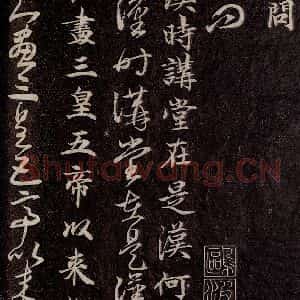 問
問
漢時講堂在是漢何
漢時講堂在是漢
畫三皇五帝以來
畫三皇五帝以來
Shufawang.CN